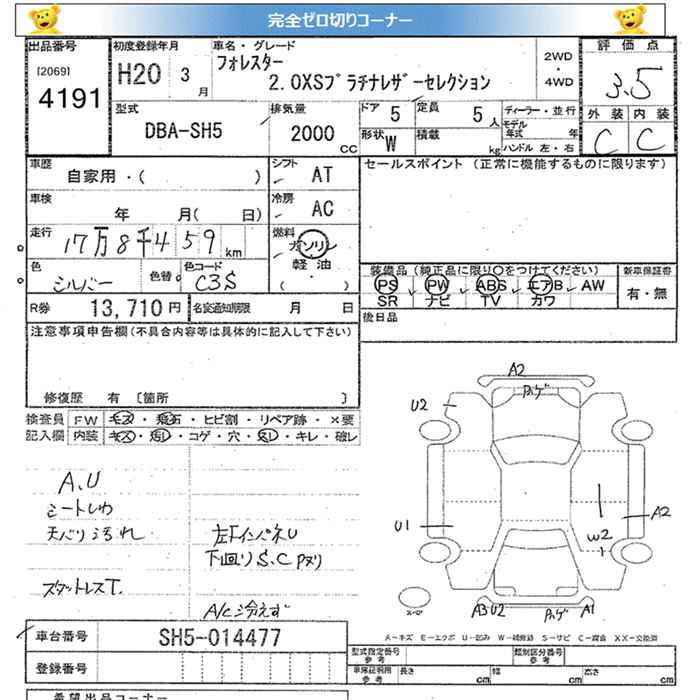 完全ゼロ切りコーナー
出品番号 初度登録年月 車名・グレード 2WD・4WD 評価点
[2069] 4191 H20 3月 フォレスター 3.5
2.0XSプラチナレザーセレクション
型式 DBA-SH5 排気量 2000cc ドア 5 定員 5人 ディーラー・並行 外装 内装
形状 W 積載 kg モデル年式 年 C C
ハンドル 左・右
車歴 自家用・( ) シフト AT セールスポイント (正常に機能するものに限ります)
車検 年 月( 日) 冷房 AC
走行 17万8千459km 燃料 ガソリン
軽油・( )
色 シルバー 色替 色コード C3S
装備品(純正品に限り○をつけてください) 新車保証書
PS PW ABS エアB AW 有・無
SR ナビ TV カワ
R券 13,710円 名変通知期限 月 日 後日品
注意事項申告欄(不具合内容等は具体的に記入して下さい)
修復歴 有 [箇所 ]
検査員 FW キズ・飛石・ヒビ割・リペア跡・×要
記入欄 内装 キズ・汚レ・コゲ・穴・スレ・キレ・破レ
A2
U2
U1
A2
W2
A3 U2
A1
A.U
シートしわ
天バリ汚れ 左FインパネU
下回りS.C Pヌリ
スタットレスT.
A/C冷えず
スペア
A-キズ E-エクボ U-凹み W-補修跡 S-サビ C-腐食 XX-交換済
車台番号 SH5-014477
型式指定番号 参考 類別区分番号 参考
登録番号 車庫証明用 参考 長さ cm 幅 cm 高さ cm
希望出品コーナー